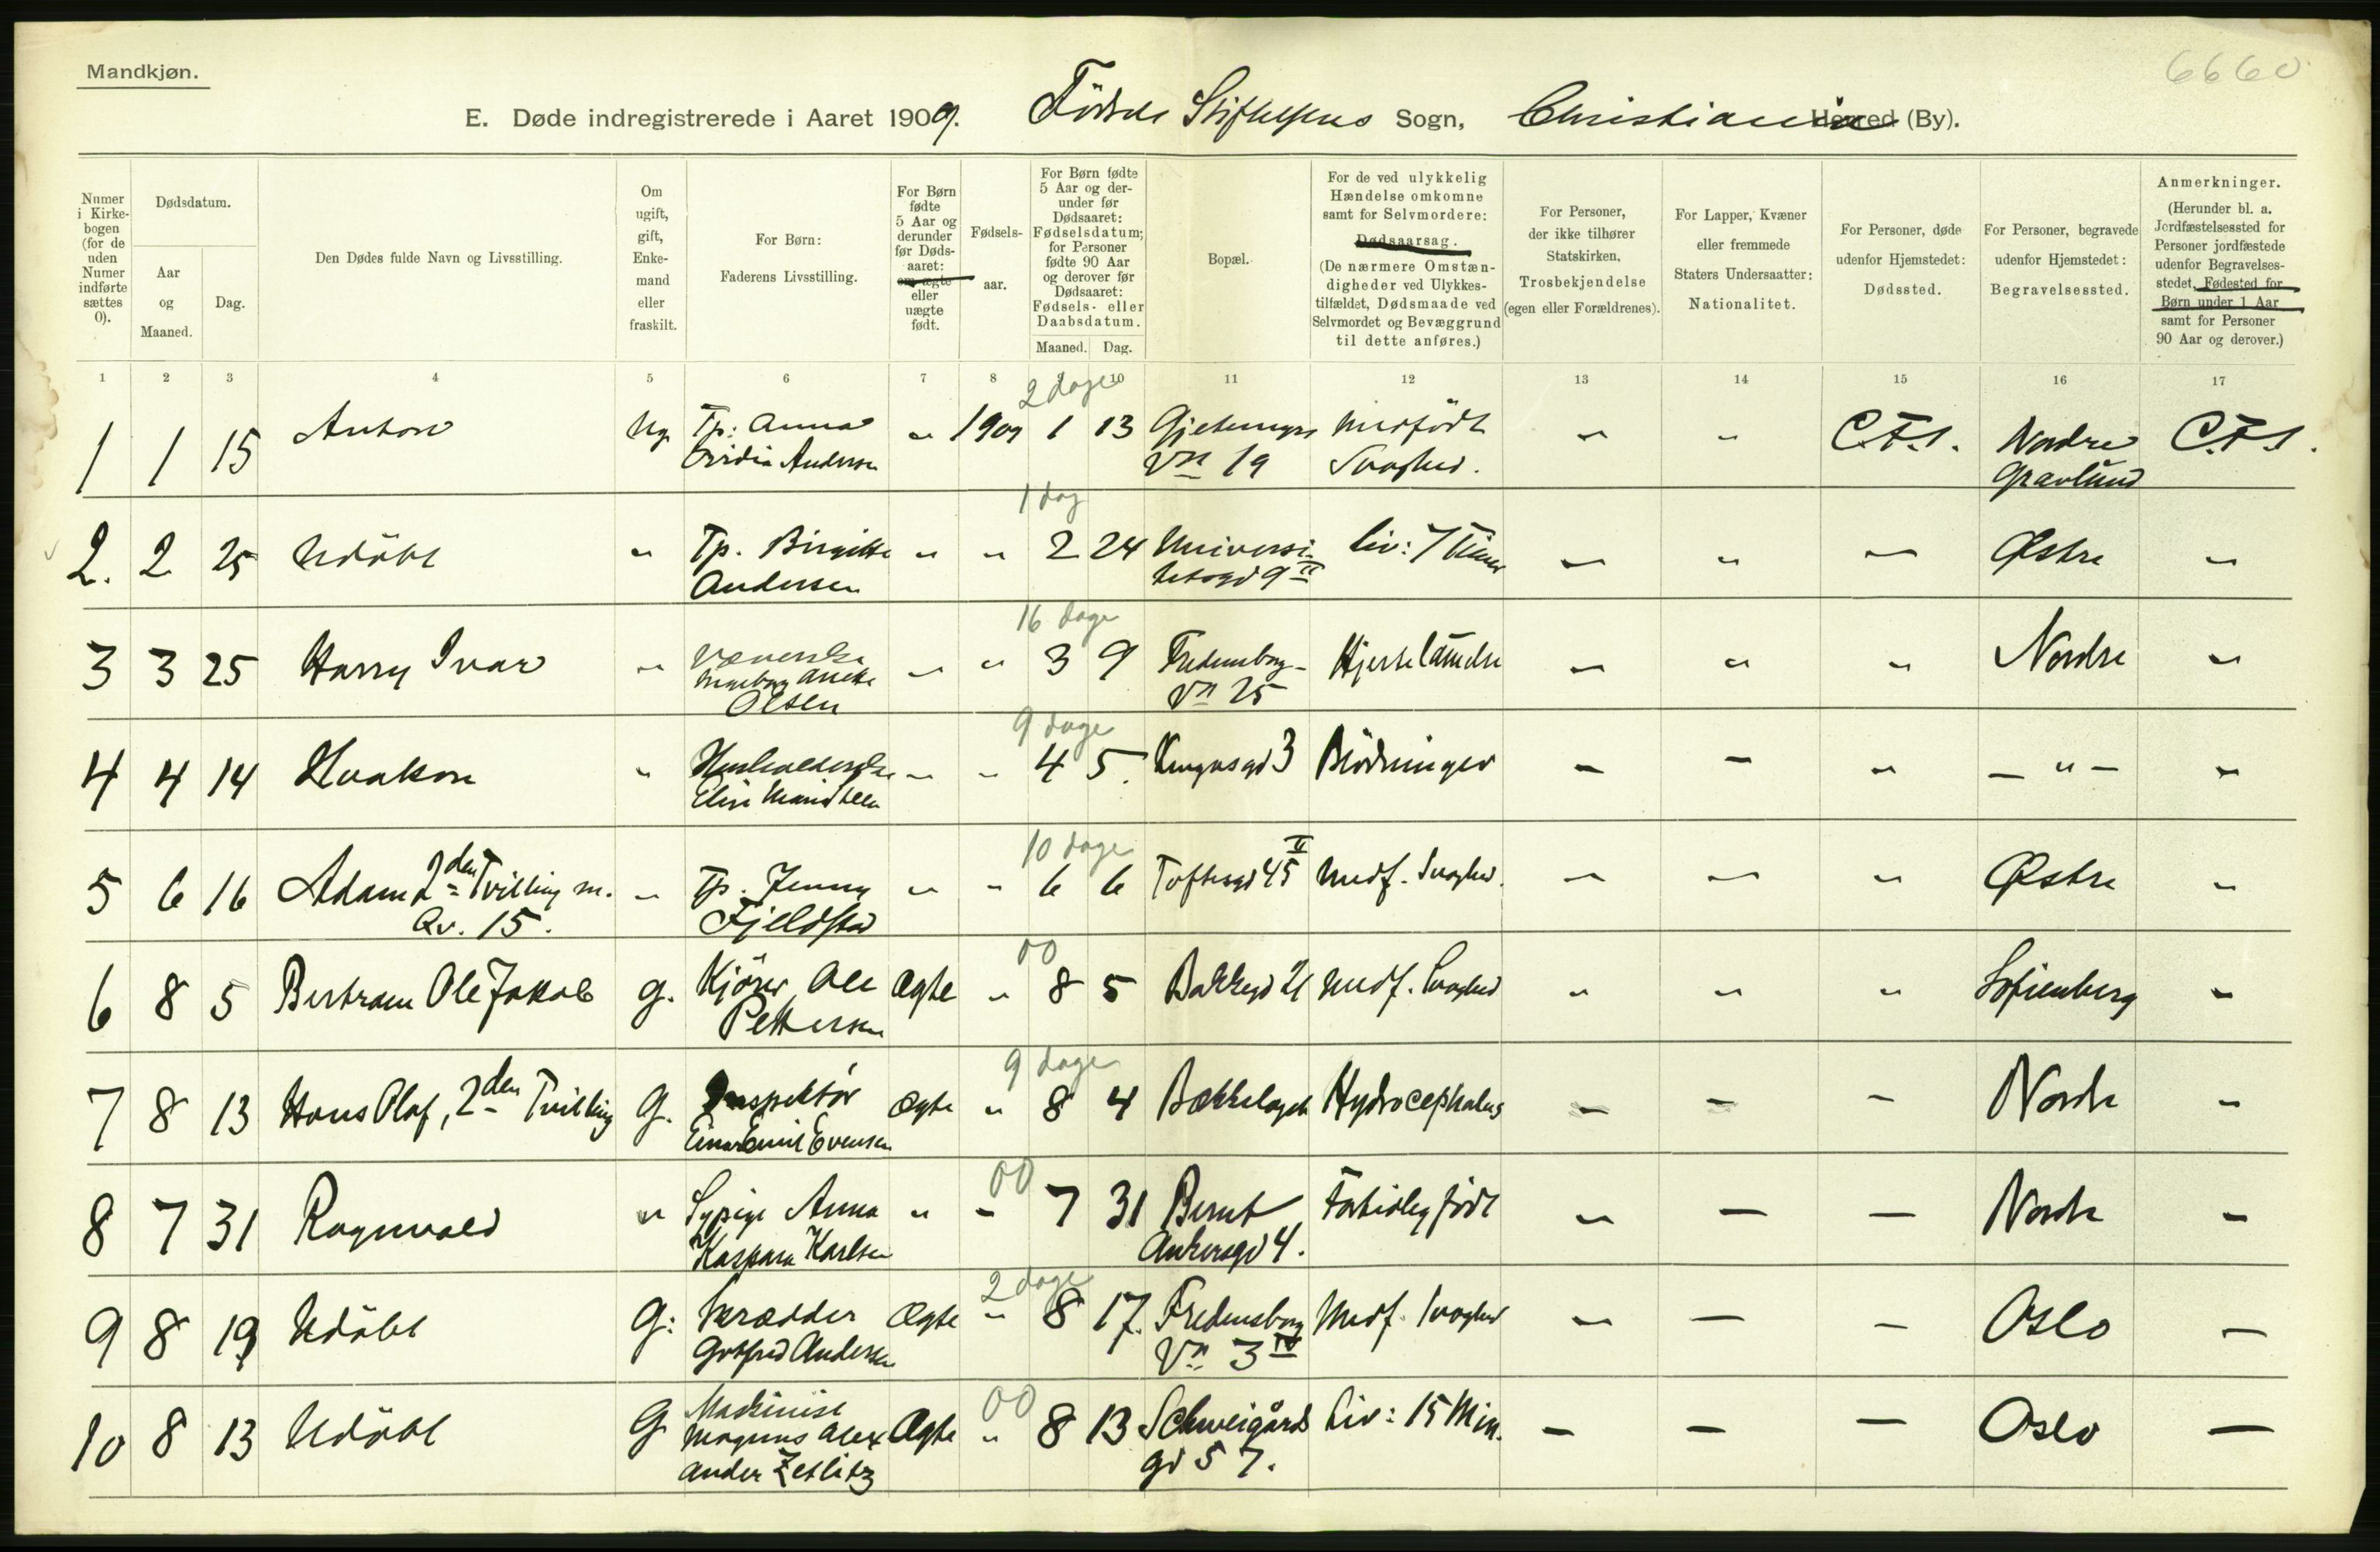 Mandkjøn.
6660
E. Døde indregistrerede i Aaret 1909. Fødsels Stiftelsens Sogn, Christiania Herred (By).
Numer i Kirkebogen (for de uden Numer indførte sættes 0).
Dødsdatum.
Aar og Maaned.
Dag.
Den Dødes fulde Navn og Livsstilling.
Om ugift, gift, Enkemand eller fraskilt.
For Børn:
Faderens Livsstilling.
For Børn fødte 5 Aar og derunder før Dødsaaret: om ægte eller uægte født.
Fødselsaar.
For Børn fødte 5 Aar og derunder før Dødsaaret: Fødselsdatum; for Personer fødte 90 Aar og derover før Dødsaaret: Fødsels- eller Daabsdatum.
Maaned. Dag.
Bopæl.
For de ved ulykkelig Hændelse omkomne samt for Selvmordere: Dødsaarsag.
(De nærmere Omstændigheder ved Ulykkestilfældet, Dødsmaade ved Selvmordet og Bevæggrund til dette anføres.)
For Personer, der ikke tilhører Statskirken, Trosbekjendelse (egen eller Forældrenes).
For Lapper, Kvæner eller fremmede Staters Undersaatter: Nationalitet.
For Personer, døde udenfor Hjemstedet: Dødssted.
For Personer, begravede udenfor Hjemstedet: Begravelsessted.
Anmerkninger.
(Herunder bl. a. Jordfæstelsessted for Personer jordfæstede udenfor Begravelsesstedet, Fødested for Børn under 1 Aar samt for Personer 90 Aar og derover.)
1 2 3 4 5 6 7 8 9 10 11 12 13 14 15 16 17
2 dage
1 1 15 Anton Ug. Tp: Anna " 1909 1 13 Medfödt " " C.F.S. Nordre C.F.S.
Andersen Vn 19 Svaghed. Gravlund
1 dag
2. 2 25 Udöbt " Tp. Birgitte " " 2 24 Universi- Liv: 7 Timer " " " Østre "
Andersen tetsgd 9 II
16 dage
3 3 25 Harry Ivar " Væverske " " 3 9 Fredensborg- Hjertelamelse " " " Nordre "
Olsen Vn 25
9 dage
4 4 14 Haakon " Husholderske " " 4 5. 3 Blödninger " - " - " - "
10 dage
5 6 16 Adam 2den Tvilling m. " Tp. Jenny " " 6 6 Toftesgd 45 II Medf. Svaghed. " " " Østre "
Qv. 15. Fjeldstad
00
6 8 5 Bertram Ole Jakob g. Kjörer Ole Ægte " 8 5 Bakkegd 21 Medf. Svaghed " " " Sofienberg "
Pettersen
9 dage
7 8 13 Hans Olaf, 2den Tvilling G. Inspektör Ægte " 8 4 Bækkelaget Hydrocephalus - - - Nordre "
Einar Emil Evensen
00
8 7 31 Ragnvald " Sypige Anna " - 7 31 Bernt Fortidlig födt " - - Nordre -
Kaspara Karlsen Ankersgd 4.
2 dage
9 8 19 Udöbt G: Skrædder Ægte " 8 17. Fredensborg Medf. Svaghed " - - Oslo -
Gotfred Andersen Vn 3 IV
00
10 8 13 Udöbt G Maskinist Ægte " 8 13 Schweigårds Liv: 15 Min. - - - Oslo -
Magnus Alex gd 57.
ander Zetlitz